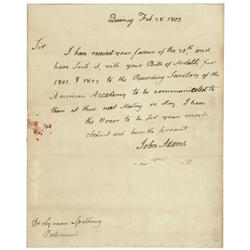 Quincy Feb. 28. 1803
Sir
I have received your favour of the 20th and
have sent it, with your Bills of Mortality for
1801 & 1802 to the Recording Secretary of the
American Accademy to be communicated to
them at their next Meeting in May. I have
the Honor to be Sir your most
obedient and humble servant.
John Adams
Dr Lyman Spalding
Portsmouth